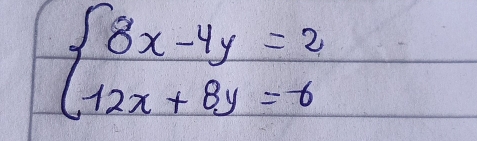 { 8x - 4y = 2
12x + 8y = 6